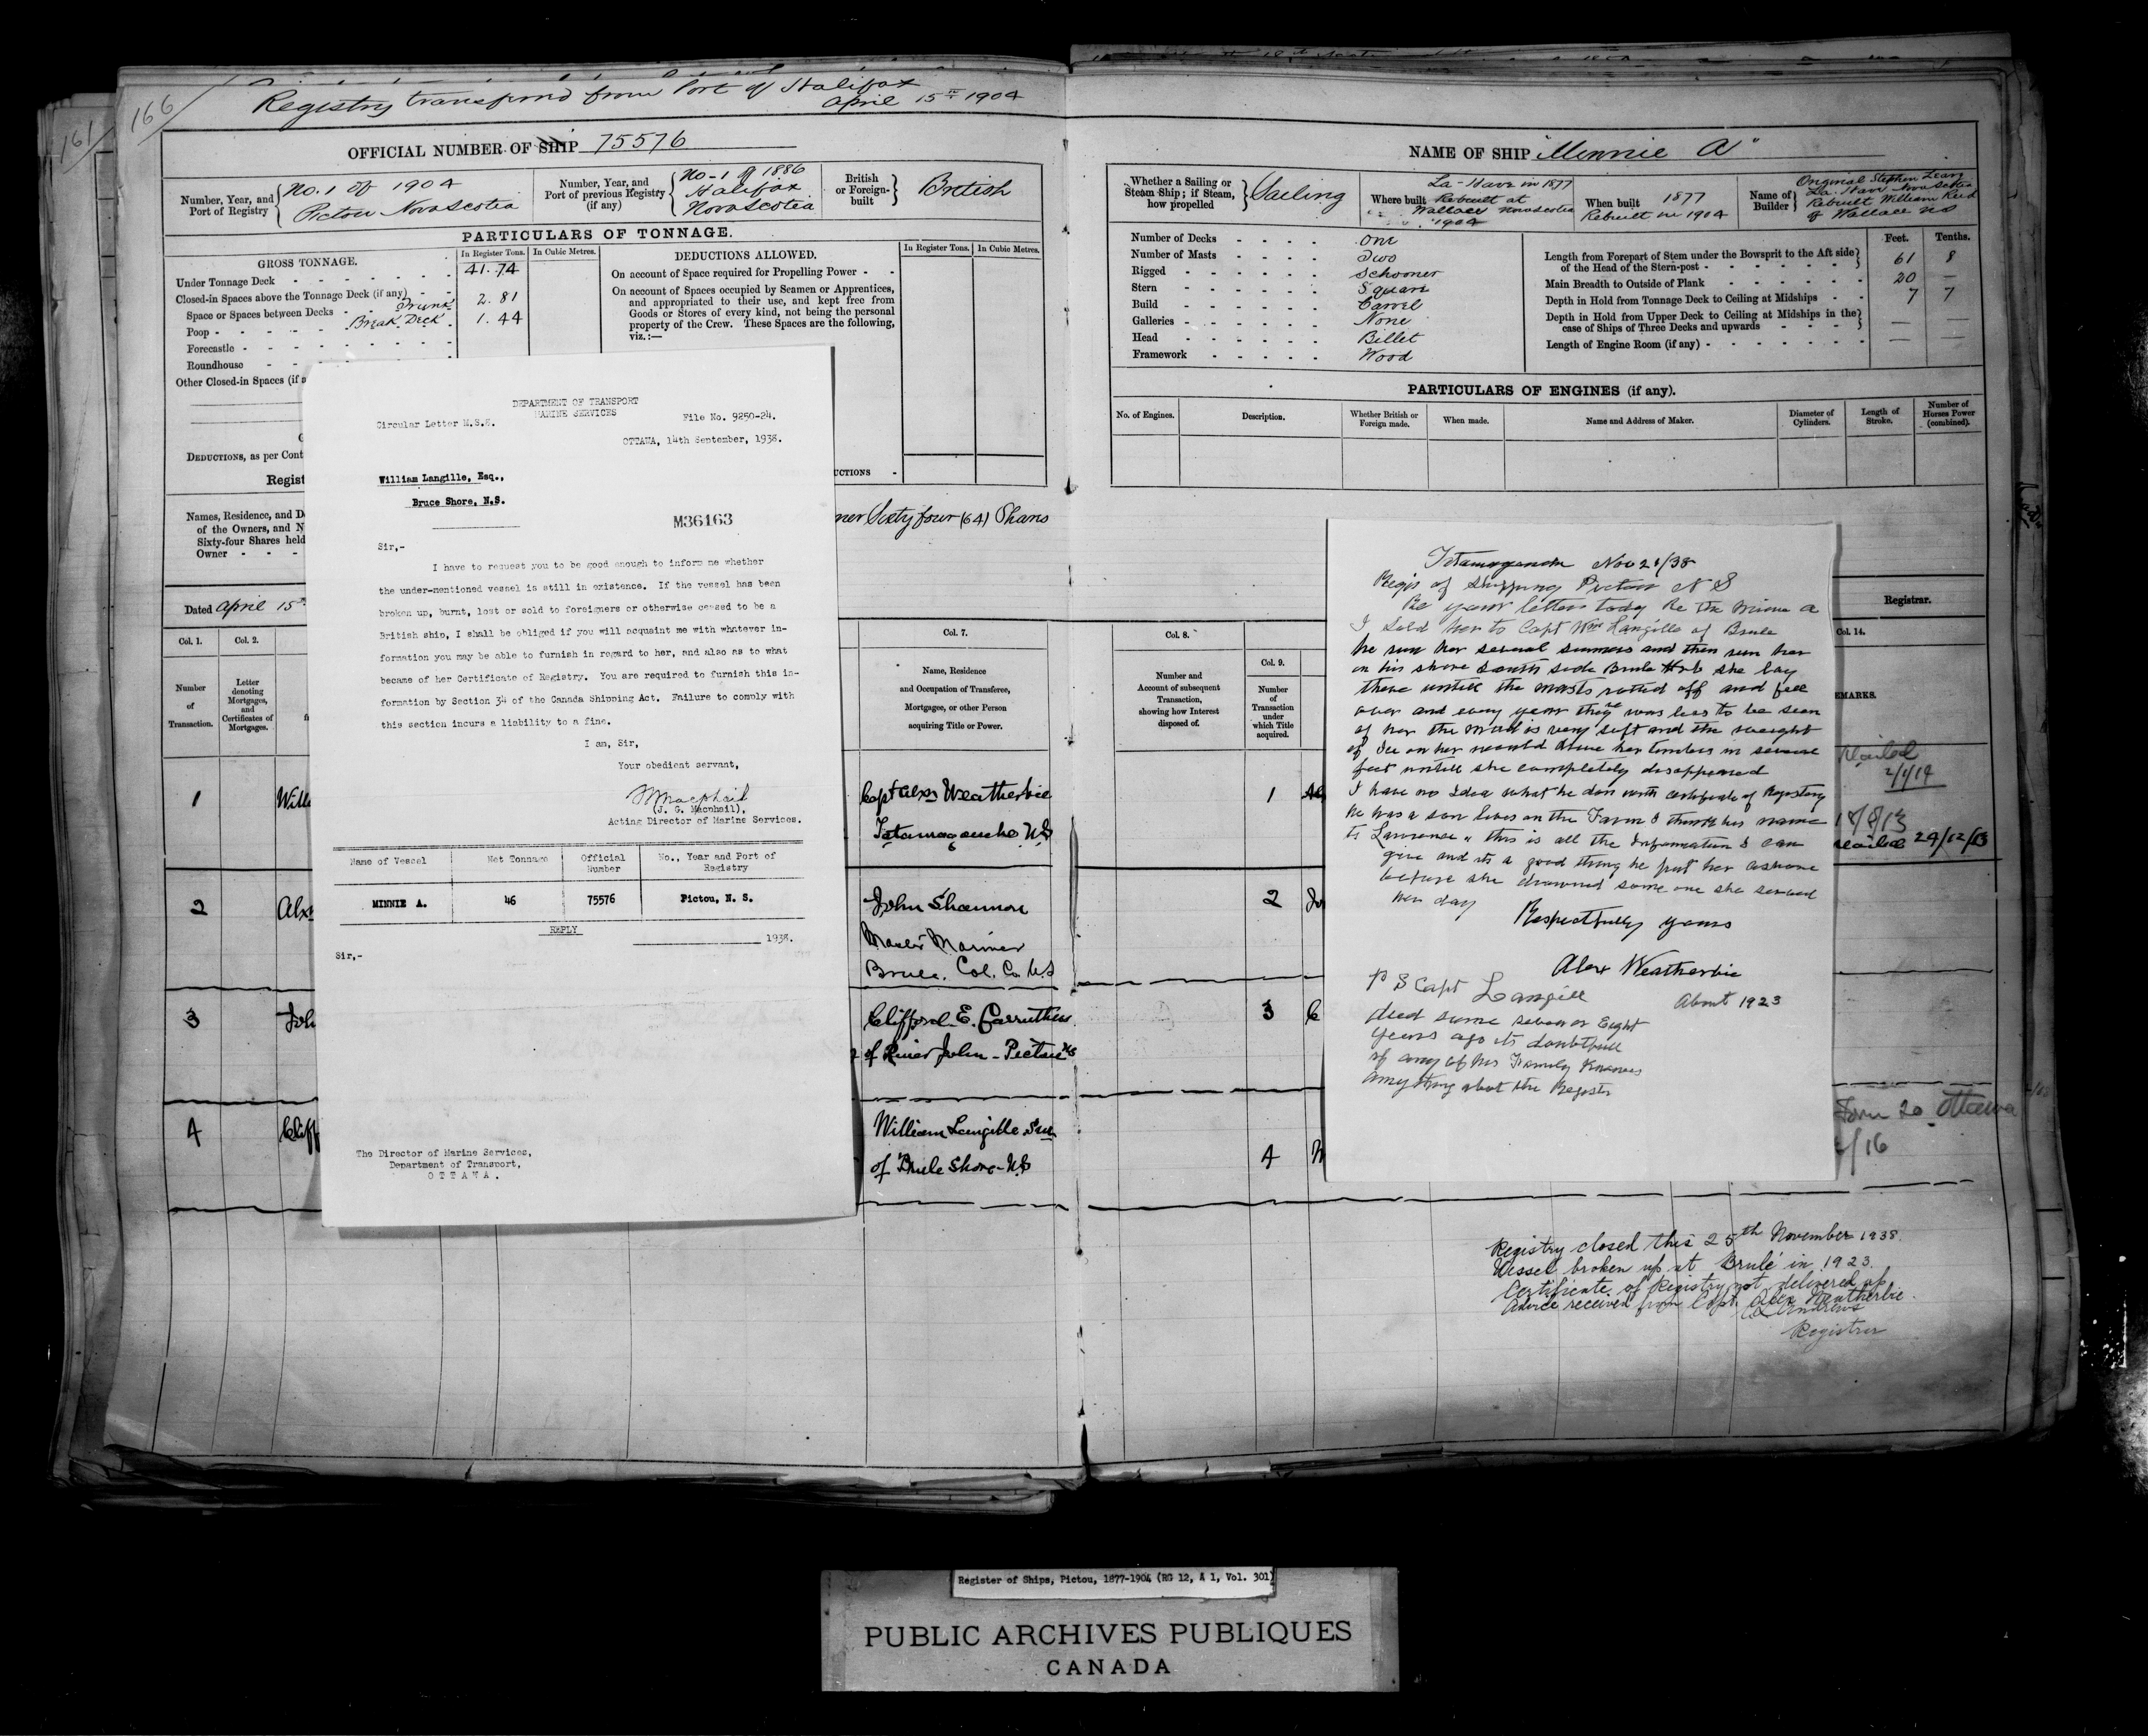 166
161
Registry transferred from Port of Halifax
April 15th 1904
OFFICIAL NUMBER OF SHIP 75576
Number, Year, and Port of Registry
No. 1 of 1904
Pictou Nova Scotia
Number, Year, and Port of previous Registry (if any)
No-1 of 1886
Halifax
Nova Scotia
British or Foreign-built
British
PARTICULARS OF TONNAGE.
GROSS TONNAGE.
In Register Tons. In Cubic Metres.
Under Tonnage Deck - 41.74
Closed-in Spaces above the Tonnage Deck (if any) -
Space or Spaces between Decks - Trunk 2.81
Poop - Break Deck 1.44
Forecastle -
Roundhouse -
Other Closed-in Spaces (if a
DEDUCTIONS ALLOWED.
In Register Tons. In Cubic Metres.
On account of Space required for Propelling Power -
On account of Spaces occupied by Seamen or Apprentices,
and appropriated to their use, and kept free from
Goods or Stores of every kind, not being the personal
property of the Crew. These Spaces are the following,
viz.:—
DEDUCTIONS, as per Cont
Regist
UCTIONS -
Names, Residence, and D
of the Owners, and N
Sixty-four Shares held
Owner - - -
ner Sixty four (64) Shares
Dated April 15th
Col. 1. Col. 2.
Number of Transaction.
Letter denoting Mortgages, and Certificates of Mortgages.
Col. 7.
Name, Residence
and Occupation of Transferee,
Mortgagee, or other Person
acquiring Title or Power.
1 Will
Capt Alex Weatherbie
Tatamagouche N.S
2 Alx
John Shannon
Master Mariner
Brule. Col. Co. NS
3 Joh
Clifford E. Carruthers
of River John - Pictou NS
4 Cliff
William Langille Snr
of Brule Shore - NS
DEPARTMENT OF TRANSPORT
MARINE SERVICES
Circular Letter M.S.E.
File No. 9250-24.
OTTAWA, 14th September, 1938.
William Langille, Esq.,
Bruce Shore, N.S.
M36163
Sir,-
I have to request you to be good enough to inform me whether
the under-mentioned vessel is still in existence. If the vessel has been
broken up, burnt, lost or sold to foreigners or otherwise ceased to be a
British ship, I shall be obliged if you will acquaint me with whatever in-
formation you may be able to furnish in regard to her, and also as to what
became of her Certificate of Registry. You are required to furnish this in-
formation by Section 34 of the Canada Shipping Act. Failure to comply with
this section incurs a liability to a fine.
I am, Sir,
Your obedient servant,
(J. G. Macphail),
Acting Director of Marine Services.
Name of Vessel Net Tonnage Official Number No., Year and Port of Registry
MINNIE A. 46 75576 Pictou, N. S.
REPLY
1938.
Sir,-
The Director of Marine Services,
Department of Transport,
OTTAWA.
NAME OF SHIP "Minnie A"
Whether a Sailing or Steam Ship; if Steam, how propelled
Sailing
Where built
La-Have in 1877
Rebuilt at
Wallace Nova Scotia
1904
When built
1877
Rebuilt in 1904
Name of Builder
Original Stephen Leary
La-Have Nova Scotia
Rebuilt William Reid
of Wallace NS
Number of Decks - One
Number of Masts - Two
Rigged - Schooner
Stern - Square
Build - Carvel
Galleries - None
Head - Billet
Framework - Wood
Feet. Tenths.
Length from Forepart of Stem under the Bowsprit to the Aft side
of the Head of the Stern-post - 61 8
Main Breadth to Outside of Plank - 20 —
Depth in Hold from Tonnage Deck to Ceiling at Midships - 7 7
Depth in Hold from Upper Deck to Ceiling at Midships in the
case of Ships of Three Decks and upwards - — —
Length of Engine Room (if any) - — —
PARTICULARS OF ENGINES (if any).
No. of Engines.
Description.
Whether British or Foreign made.
When made.
Name and Address of Maker.
Diameter of Cylinders.
Length of Stroke.
Number of Horses Power (combined).
Registrar.
Col. 8.
Number and
Account of subsequent
Transaction,
showing how Interest
disposed of.
Col. 9.
Number of Transaction under which Title acquired.
Col. 14.
EMARKS.
1
2
3
4
24/12/13
to Ottawa
/16
Tatamagouche Nov 21/38
Regis of Shipping Pictou N S
Re your letter today Re the Minnie A
I Sold her to Capt Wm Langille of Brule
he run her several summers and then run her
on his shore South side Brule Hrb she lay
there untill the masts rotted off and fell
over and every year there was less to be seen
of her the mud is very soft and the weight
of Ice on her would drive her timbers in several
feet untill she completely disappeared
I have no Idea what he don with certificate of Registry
he has a son lives on the Farm I think his name
is Lawrence. this is all the Information I can
give and its a good thing he put her ashore
before she drowned some one she served
her day
Respectfully yours
Alex Weatherbie
P S Capt Langill About 1923
died some seven or Eight
years ago its doubtfull
if any of his Family knows
any thing about the Register
Registry closed this 25th November 1938.
Vessel broken up at Brulé in 1923.
Certificate of Registry not delivered up
Advice received from Capt. Alex Weatherbie.
Registrar
Register of Ships, Pictou, 1877-1904 (RG 12, A 1, Vol. 301)
PUBLIC ARCHIVES PUBLIQUES
CANADA